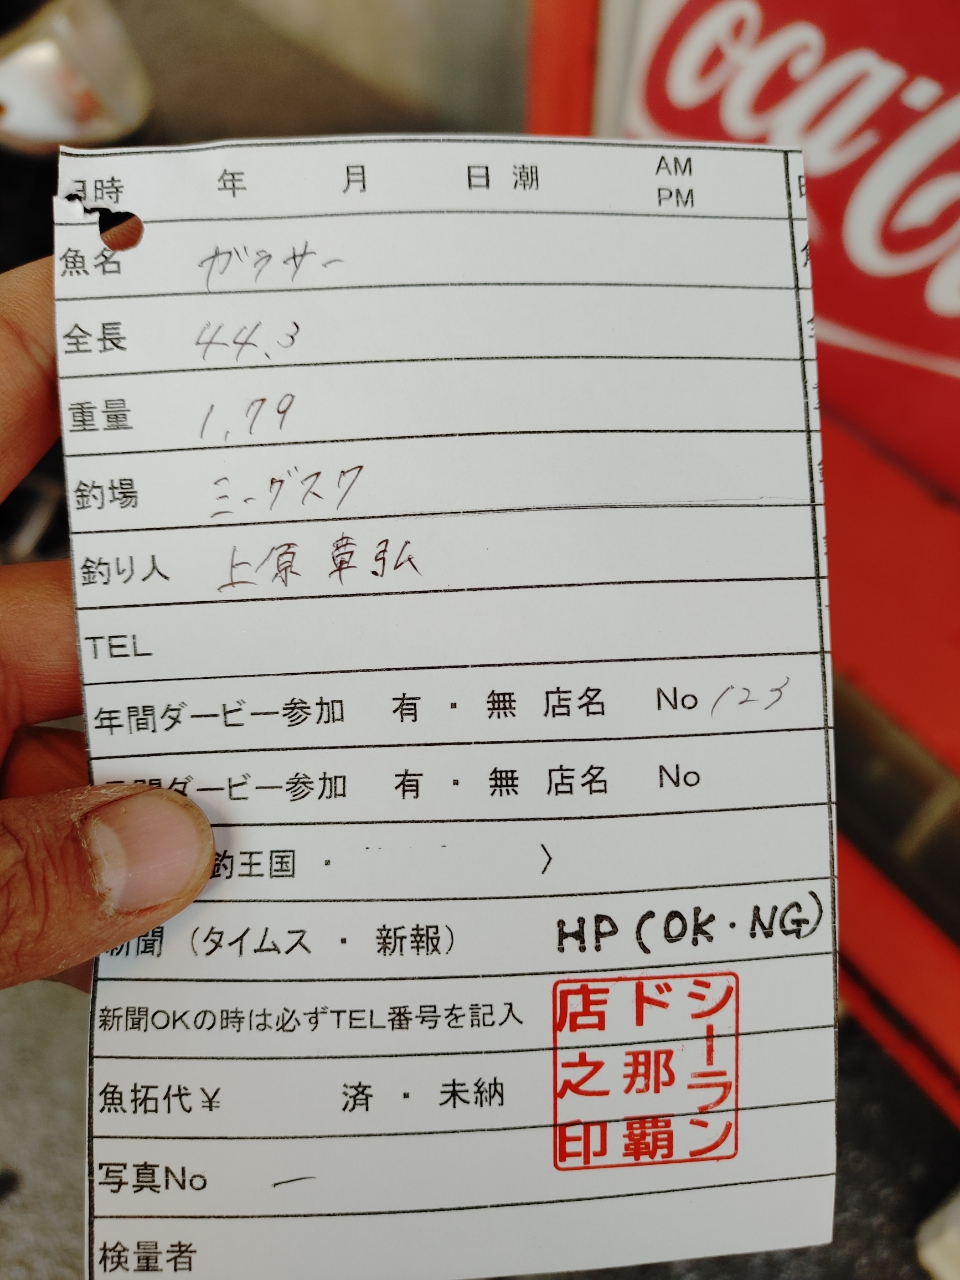 oca-Co
日時 年 月 日 潮 AM PM
魚名 ガラサー
全長 44.3
重量 1.79
釣場 ミーグスク
釣り人 上原 章弘
TEL
年間ダービー参加 有・無 店名 No 123
間ダービー参加 有・無 店名 No
釣王国・ 〉
新聞（タイムス・新報） HP(OK・NG)
新聞OKの時は必ずTEL番号を記入
魚拓代¥ 済・未納
写真No 一
検量者
シーランド那覇店之印